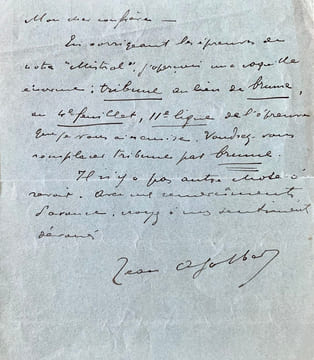 Mon cher confrère —
En corrigeant les épreuves de
votre "Mistral", j'aperçois une coquille
énorme : tribune au lieu de brume,
au 4e feuillet, 11e ligne de l'épreuve
que je vous ai remise. Voudrez-vous
remplacer tribune par brume.
Il n'y a pas autre chose à
revoir. Avec mes remerciements
d'avance, croyez à mes sentiments
dévoués
Jean Ajalbert